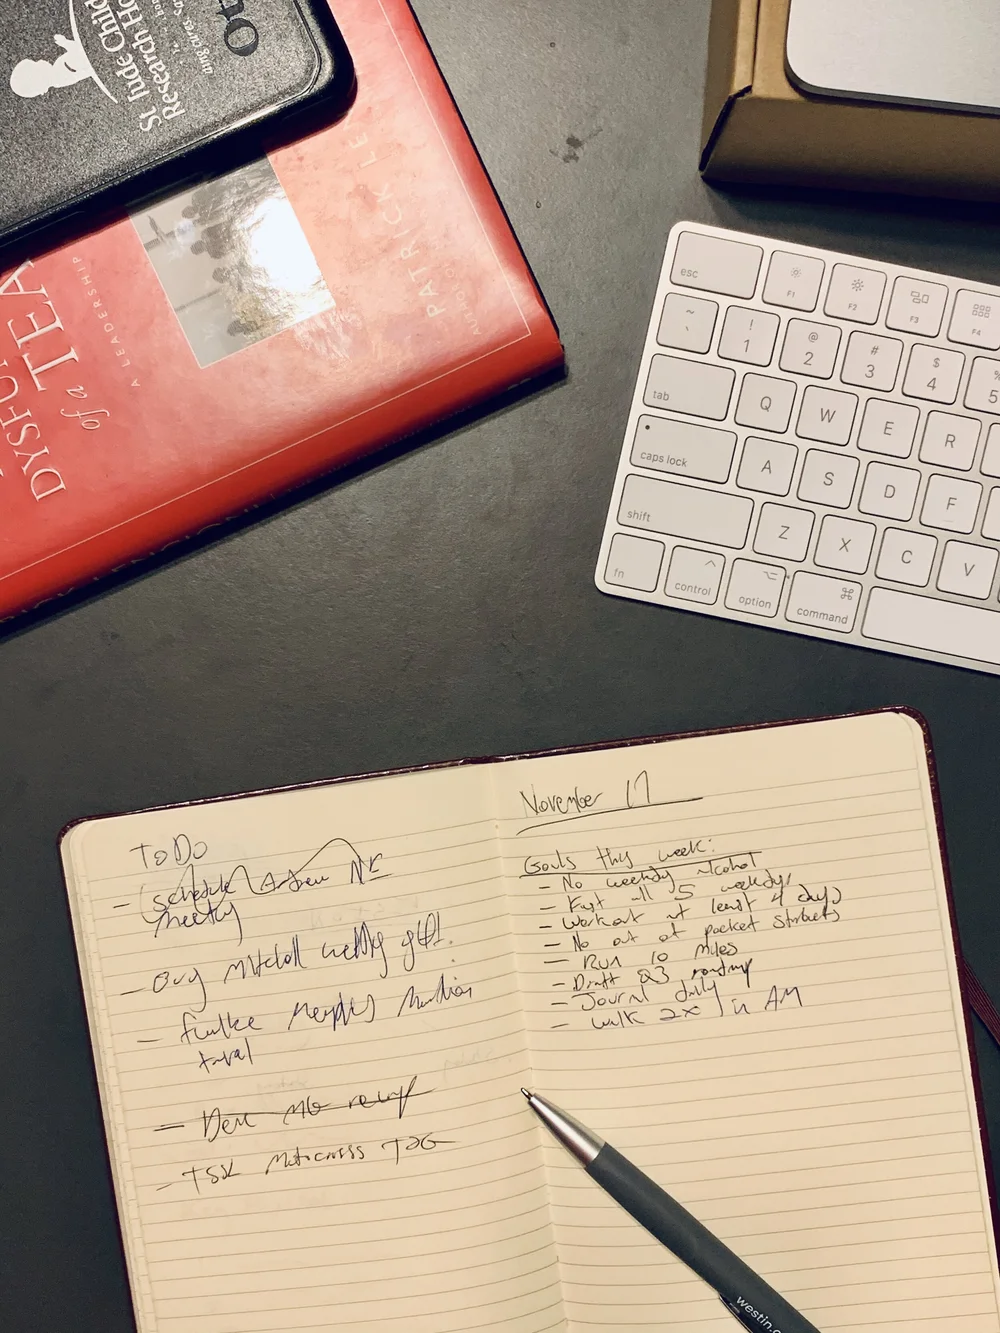 St. Jude Child
Research Ho
Ou
DYSFUN
of a TEA
A LEADERSHIP
PATRICK LE
esc
F1
F2
F3
F4
~
`
!
1
@
2
#
3
$
4
%
5
tab
Q
W
E
R
caps lock
A
S
D
F
shift
Z
X
C
V
fn
control
option
command
ToDo
- Schedule
meeting
- Buy Mitchell wedding gift!
- finalize Memphis
travel
- MG recap
- TSK
November 17
Goals this week:
- No weekday alcohol
- Fast all 5 weekdays
- Workout at least 4 days
- No out of pocket
- Run 10 miles
- Draft Q3 roadmap
- Journal daily
- walk 2x in AM
westin.c